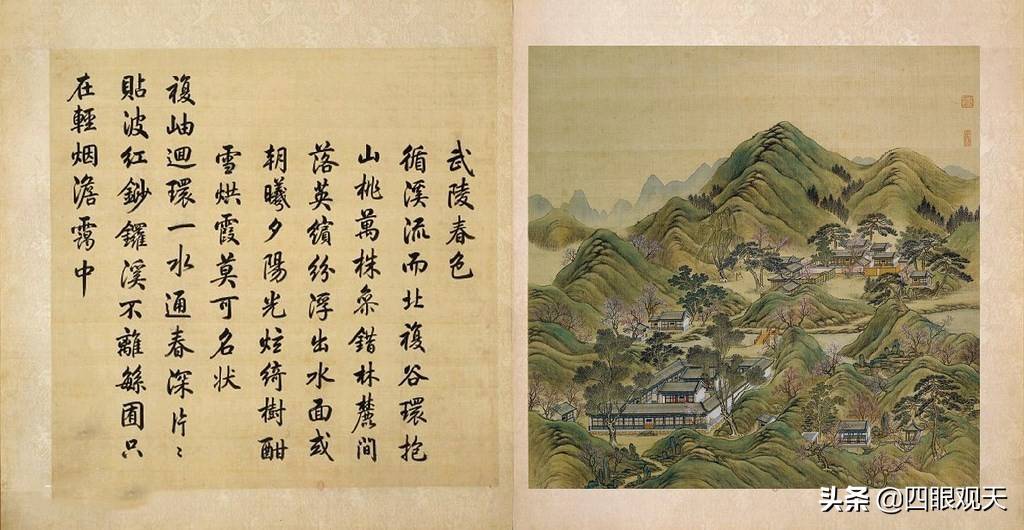 武陵春色
循溪流而北複谷環抱
山桃萬株叅錯林麓間
落英繽紛浮出水面或
朝曦夕陽光炫綺樹酣
雪烘霞莫可名狀
複岫迴環一水通春深片〻
貼波紅鈔鑼溪不離繇圃只
在輕烟澹靄中
头条 @四眼观天